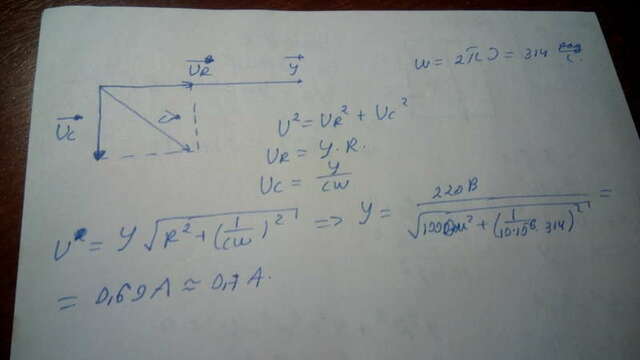 U_R J ω = 2πν = 314 рад/с.
U_C U
U² = U_R² + U_C²
U_R = J · R.
U_C = J/(Cω)
U = J √(R² + (1/(Cω))²) => J = 220В / √(100 Ом² + (1/(10·10⁻⁶ · 314))²) =
= 0,69A ≈ 0,7A.